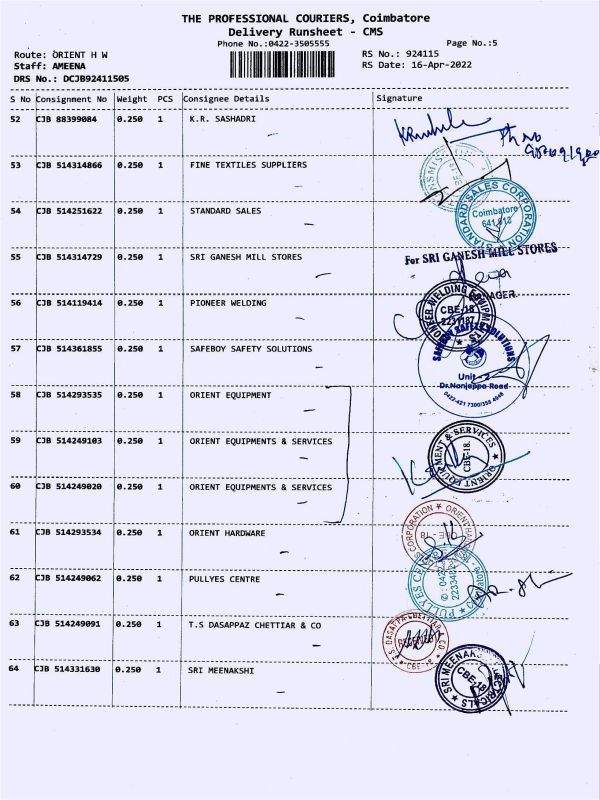 THE PROFESSIONAL COURIERS, Coimbatore
Delivery Runsheet - CMS
Phone No.:0422-3505555 Page No.:5
Route: ORIENT H W RS No.: 924115
Staff: AMEENA RS Date: 16-Apr-2022
DRS No.: DCJB92411505
S No Consignment No Weight PCS Consignee Details Signature
52 CJB 88399084 0.250 1 K.R. SASHADRI
Ph No
53 CJB 514314866 0.250 1 FINE TEXTILES SUPPLIERS
54 CJB 514251622 0.250 1 STANDARD SALES
STANDARD SALES CORPORATION
Coimbatore
55 CJB 514314729 0.250 1 SRI GANESH MILL STORES
For SRI GANESH MILL STORES
56 CJB 514119414 0.250 1 PIONEER WELDING
PIONEER WELDING
CBE-18
57 CJB 514361855 0.250 1 SAFEBOY SAFETY SOLUTIONS
SAFEBOY SAFETY SOLUTIONS
Unit - 2
Dr.Nanjappa Road
58 CJB 514293535 0.250 1 ORIENT EQUIPMENT
59 CJB 514249103 0.250 1 ORIENT EQUIPMENTS & SERVICES
ORIENT EQUIPMENT & SERVICES
CBE-18.
60 CJB 514249020 0.250 1 ORIENT EQUIPMENTS & SERVICES
61 CJB 514293534 0.250 1 ORIENT HARDWARE
62 CJB 514249062 0.250 1 PULLYES CENTRE
63 CJB 514249091 0.250 1 T.S DASAPPAZ CHETTIAR & CO
CBE-18
64 CJB 514331630 0.250 1 SRI MEENAKSHI
CBE-18